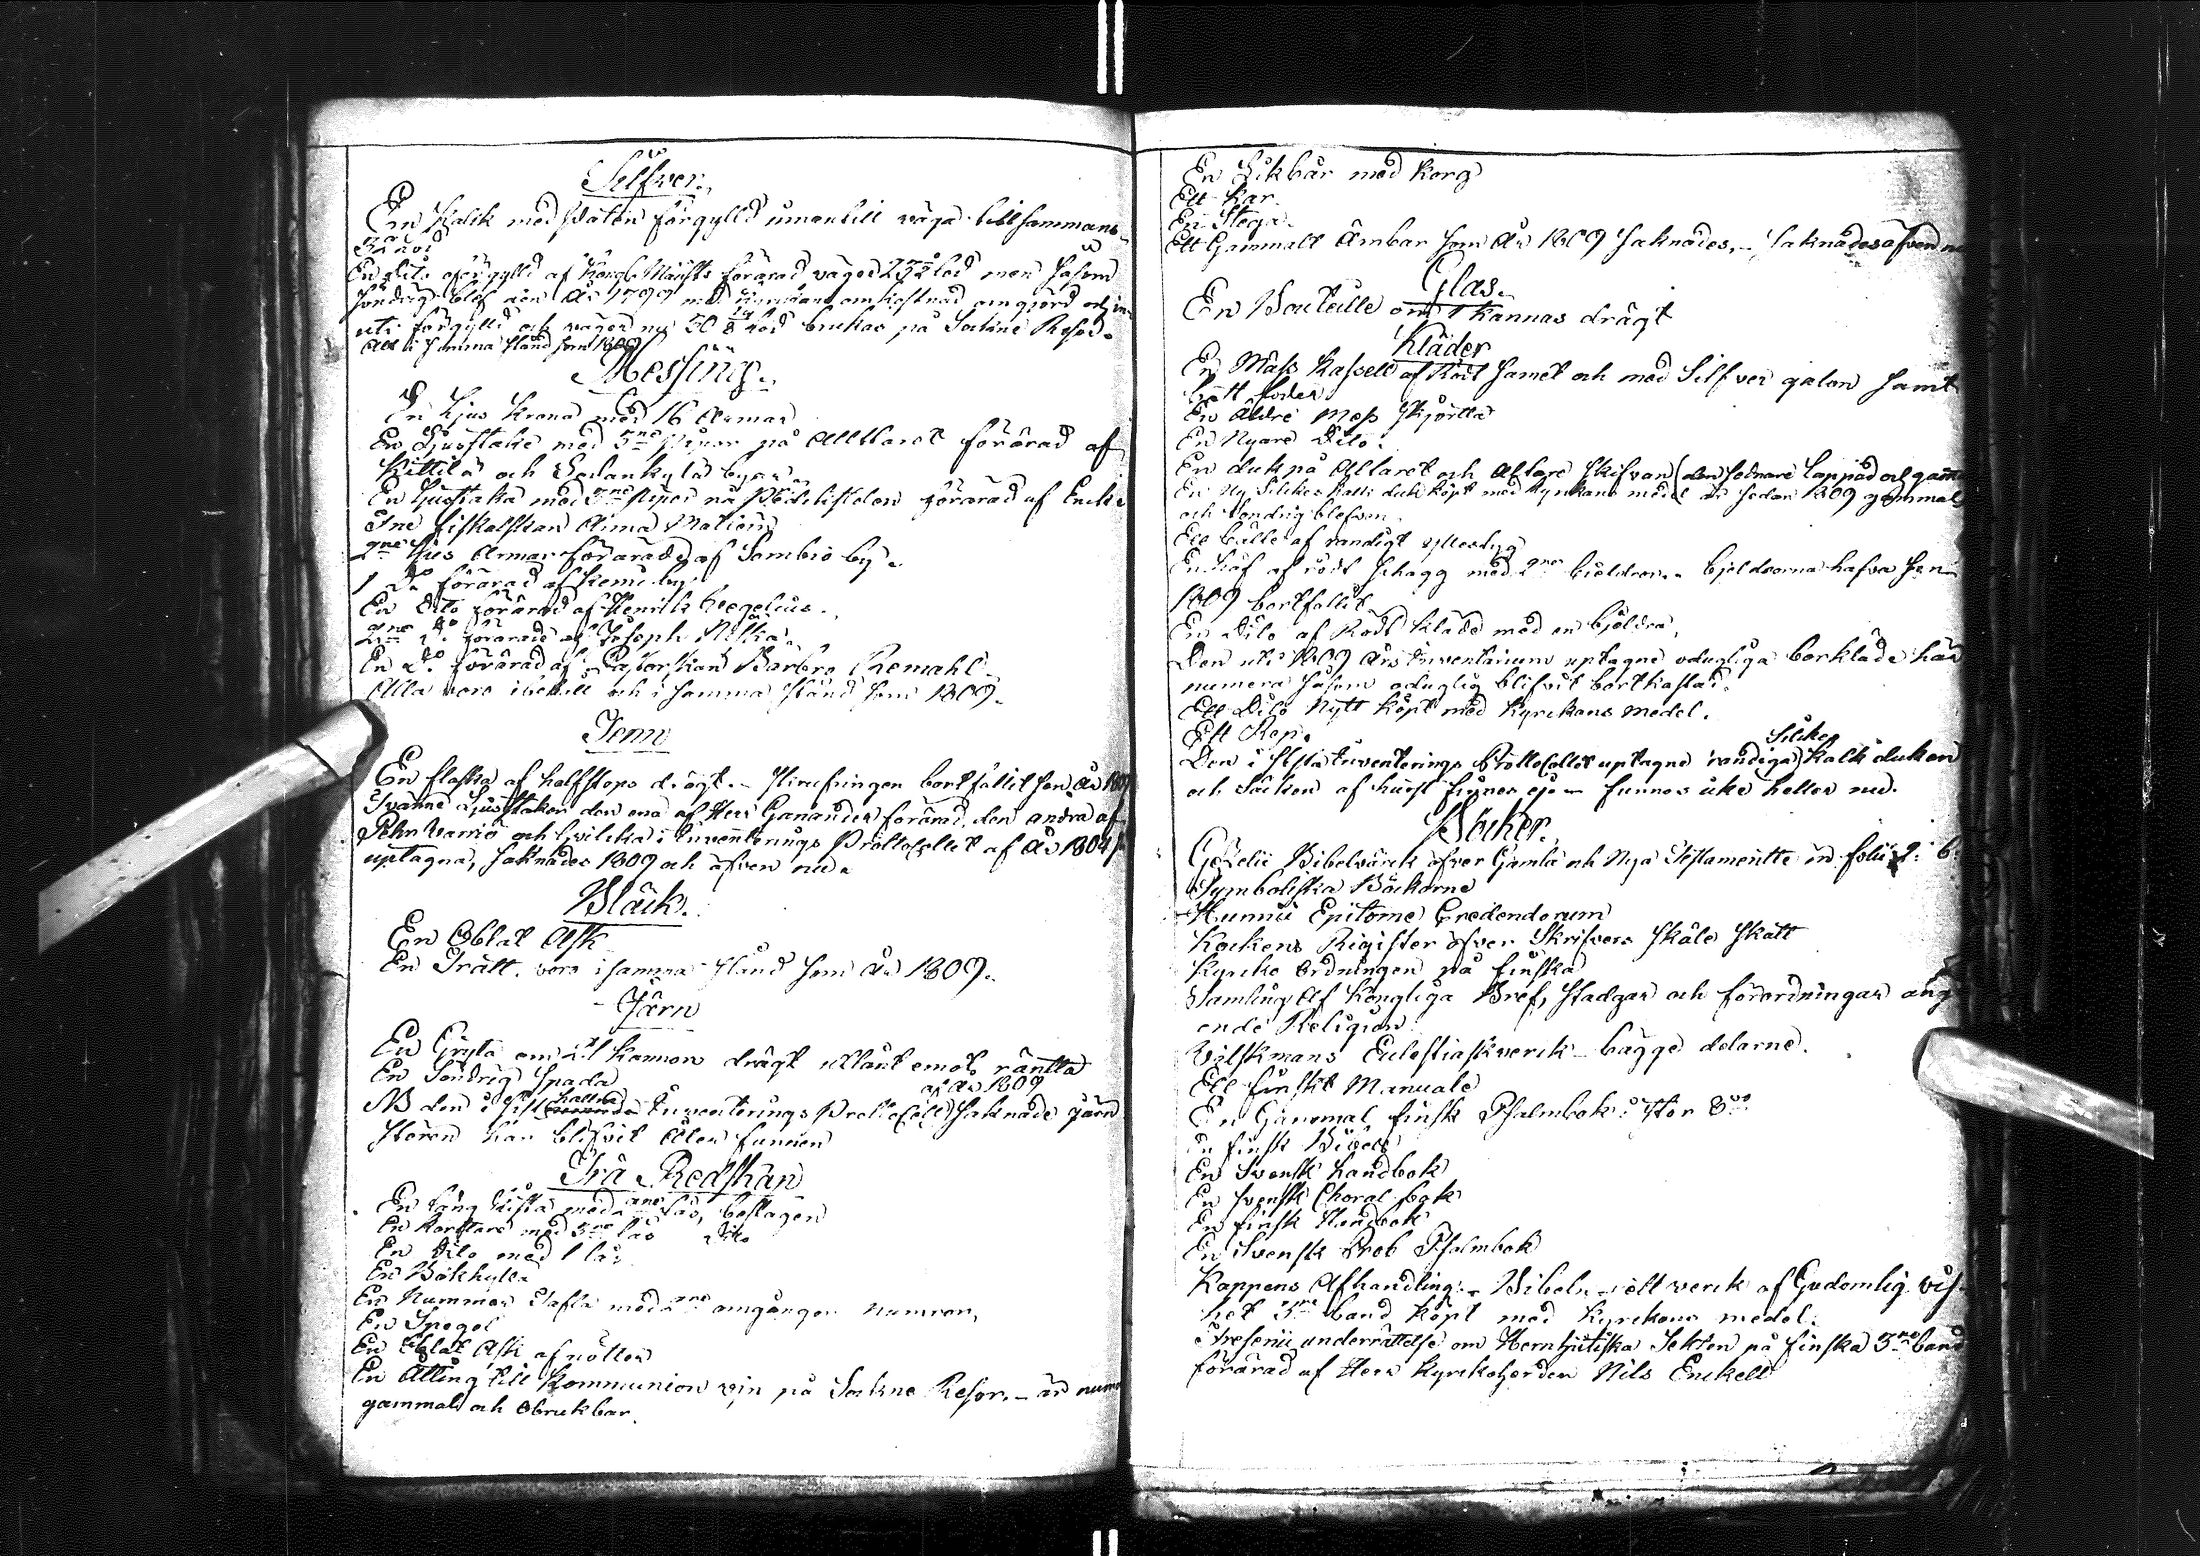 Silfver.
En Kalk med Paten förgylld innantill väga tillsammans
32 lod
En dito oförgylld af Kongl. Maij:ts förärad väger 23 lod men såsom
söndrig blef den År 1799 med Kyrckans omkostnad omgjord och in-
uti förgylld och väger nu 30 lod brukas på Sockne Resor.
Allt i samma stånd som 1809
Messing.
En Ljus Krona med 16 Armar
En Ljusstake med 3ne Pipor på Alttaret förärad af
Kittilä och Sodankylä byar.
En Ljusstaka med Pipor på Predikstolen förärad af Encke
Fru Fiskalskan Anna
2ne Ljus Armar förärade af Sombio by.
1 Do förärad af Kemi by
En Dito förärad af Henrik Wegelius.
2ne Do förärade af Joseph
En Do förärad af Pastorskan Barbro Remahl.
Alla voro i behåll och i samma stånd som 1809.
Tenn
En flaska af halfstops drägt. bortfallit sen År 1809
Tvänne Ljusstakar den ena af Herr Ganander förärad, den andra af
Pehr Varrio och hvilcka i Inventerings Protocollet af År 1804
uptagna, saknades 1809 och äfven nu.
Bläck.
En Oblat Ask
En Tratt. voro i samma stånd som År 1809.
Järn
En Gryta om Kannor drägt utlånt emot räntta
En Söndrig Spada
af År 1809
NB den i sist hållne Inventerings Protocoll saknade järn
Stören har blifvit åter funnen
Trä Redskap
En lång Kista med 2ne lås, beslagen
En kortare med 3ne lås Dito
En Dito med 1 lås
En Bokhylla
En Nummer Tafla med omgångor numror,
En Spegel
En Oblat Ask af nötter
En Åtting till Kommunion vin på Sockne Resor. – är numera
gammal och Obrukbar.
En Likbår med Korg
Ett Kar.
En Stega.
Ett Gammalt Ämbar som År 1809 saknades, – saknades äfven nu
Glas.
En Bouteille om 1 Kannas drägt
Kläder
En Mäss Kassell af Rödt samet och med Silfver galon samt
foder
En Äldre Mess Skjortta
En Nyare Dito.
En duk på Altaret och Altare Skifvan (den sednare lappad och gammal
En ny Silckes Kalk duk köpt med Kyrckans medel är sedan 1809 gammal
och söndrig blefven.
Ett Täcke af randigt ylletyg
En Håf af rödt schagg med 2ne bieldror. bjeldrorna hafva sen
1809 bortfallit
En Dito af Rödt kläde med en bjeldra,
Den uti 1809 års Inventarium uptagne odugliga borkläde har
numera såsom oduglig blifvit bortkastad.
Ett Dito Nytt köpt med Kyrckans medel.
Ett Rep.
Silckes
Den i sista Inventerings Protocollet uptagne randiga Kalk duken
och Säcken af finnes ej – funnes icke heller nu.
Böcker.
Gezelii Bibelvärck öfver Gamla och Nya Testamentte in folio 2. b.
Symboliska Böckerne
Kunnii Epitome Credendorum
Kockens Rigister öfver Skrifvers Skåle Skatt
Kyrcko Ordningen på finska
Samling af Kongliga Bref, Stadgar och förordningar ang-
ende Religion
Vilskmans Eclesiastikverck bägge delarne.
Ett finskt Manuale
En Gammal finsk Psalmbok i stor 8vo
En finsk Bibel
En Svensk handbok
En svensk Choral bok
En finsk Handbok
En Svensk Prob Psalmbok
Kappens Afhandling. – Bibeln ett verck af Gudomlig vis-
het 3ne band köpt med Kyrckans medel.
Fresenii underrättelse om Hernhutiska Sekten på finska 3ne band
förärad af Herr Kyrckoherden Nils Enckell